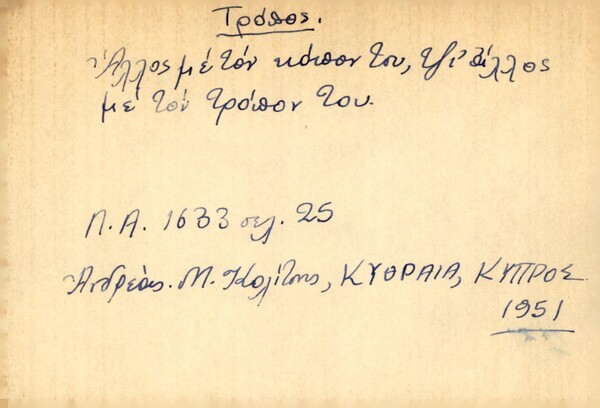 Τρόπος.
Ἄλλος μέ τόν κόπον του, τζ̆ι' ἄλλος
μέ τόν τρόπον του.
Λ.Α. 1633 σελ. 25
Ἀνδρέας. Μ. Κολίτσης, ΚΥΘΡΑΙΑ, ΚΥΠΡΟΣ
1951